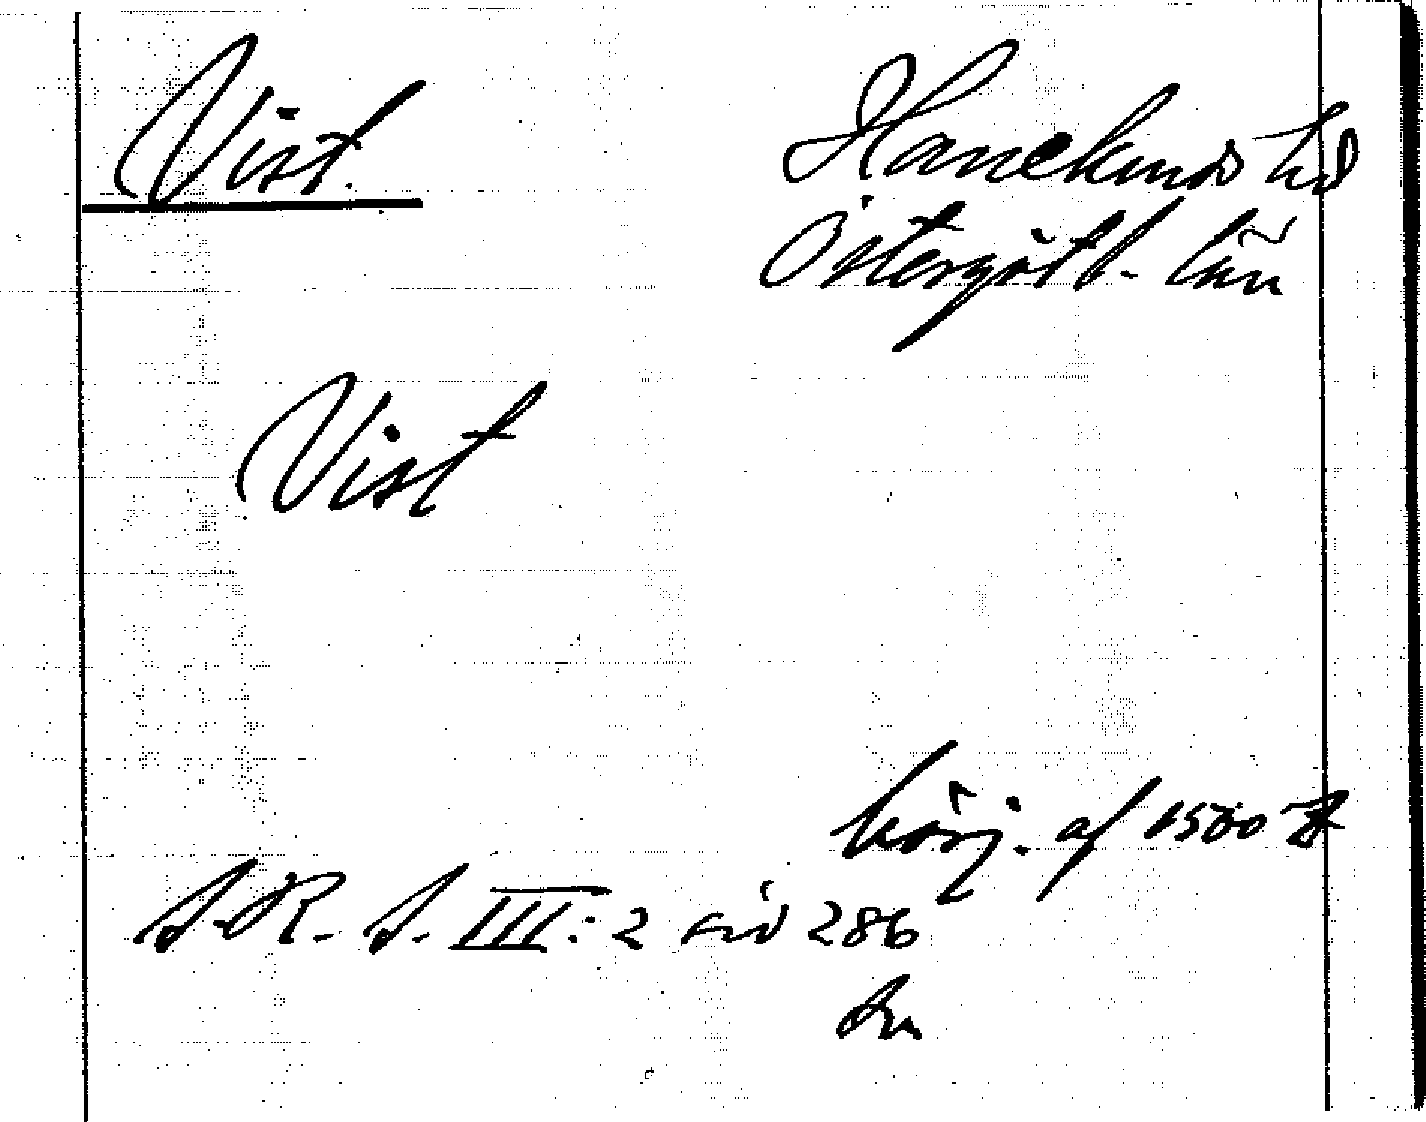 Vist. Hanekinds hd
Östergötl. län
Vist
börj. af 1500 t
S. R. S. III: 2 sid 286